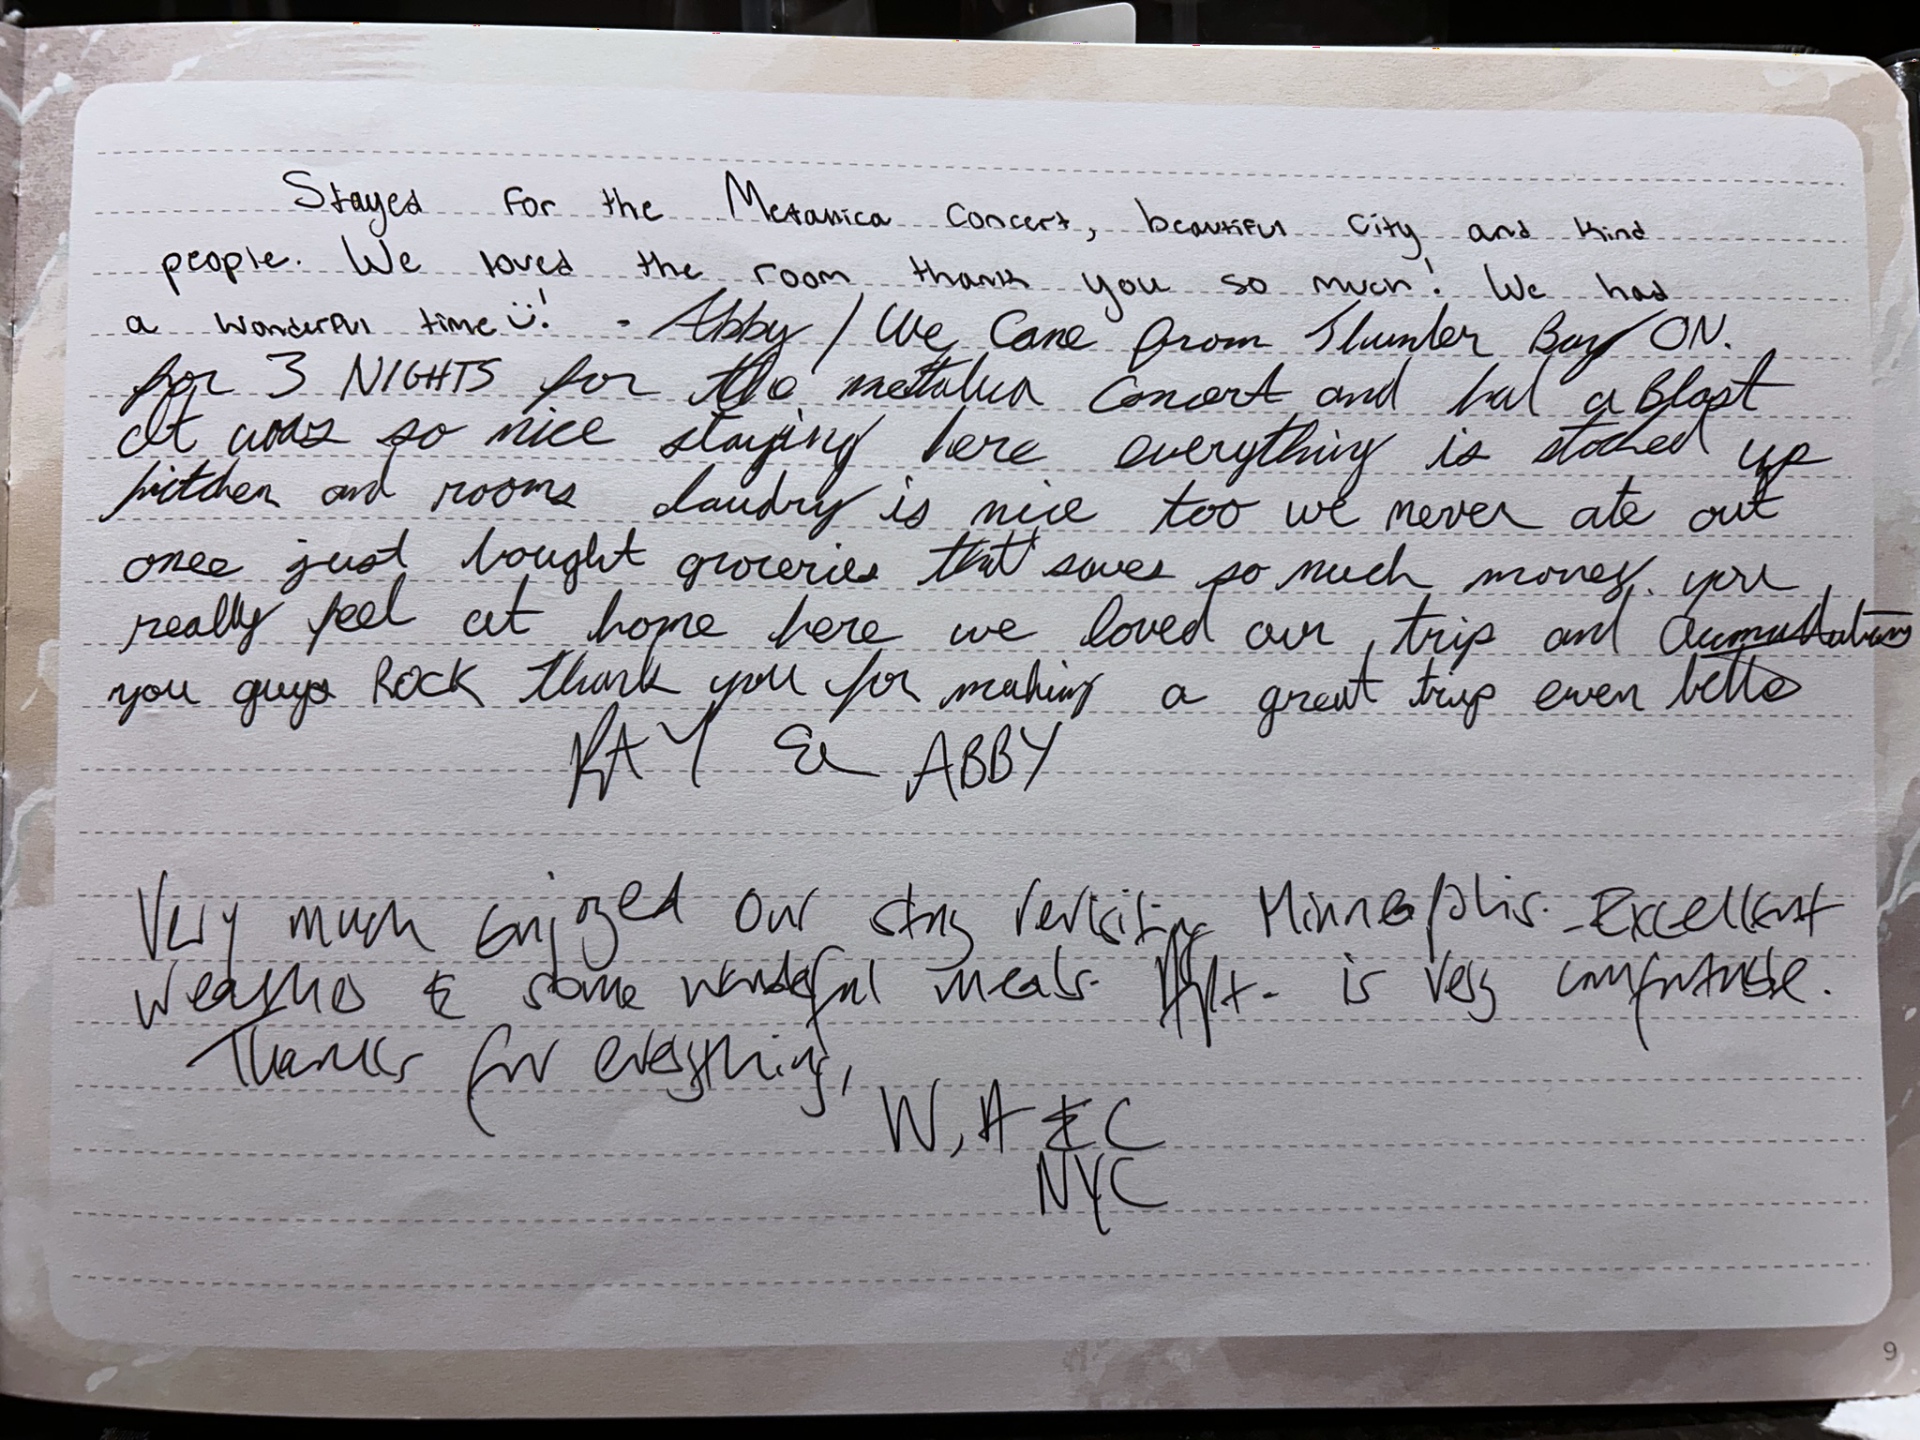 Stayed for the Metallica concert, beautiful city and kind
people. We loved the room thank you so much! We had
a wonderful time :)! - Abby / We Came from Thunder Bay ON.
for 3 NIGHTS for the mettalica Concert and had a Blast
It was so nice staying here everything is stocked up
kitchen and rooms laudry is nice too we never ate out
once just bought groceries that saves so much money. you
really feel at home here we loved our trip and
you guys ROCK thank you for making a great trip even better
RAY & ABBY
Very much enjoyed our stay revisiting Minneapolis. Excellent
weather & some wonderful meals. Apt. is very comfortable.
Thanks for everything,
W, A & C
NYC
9